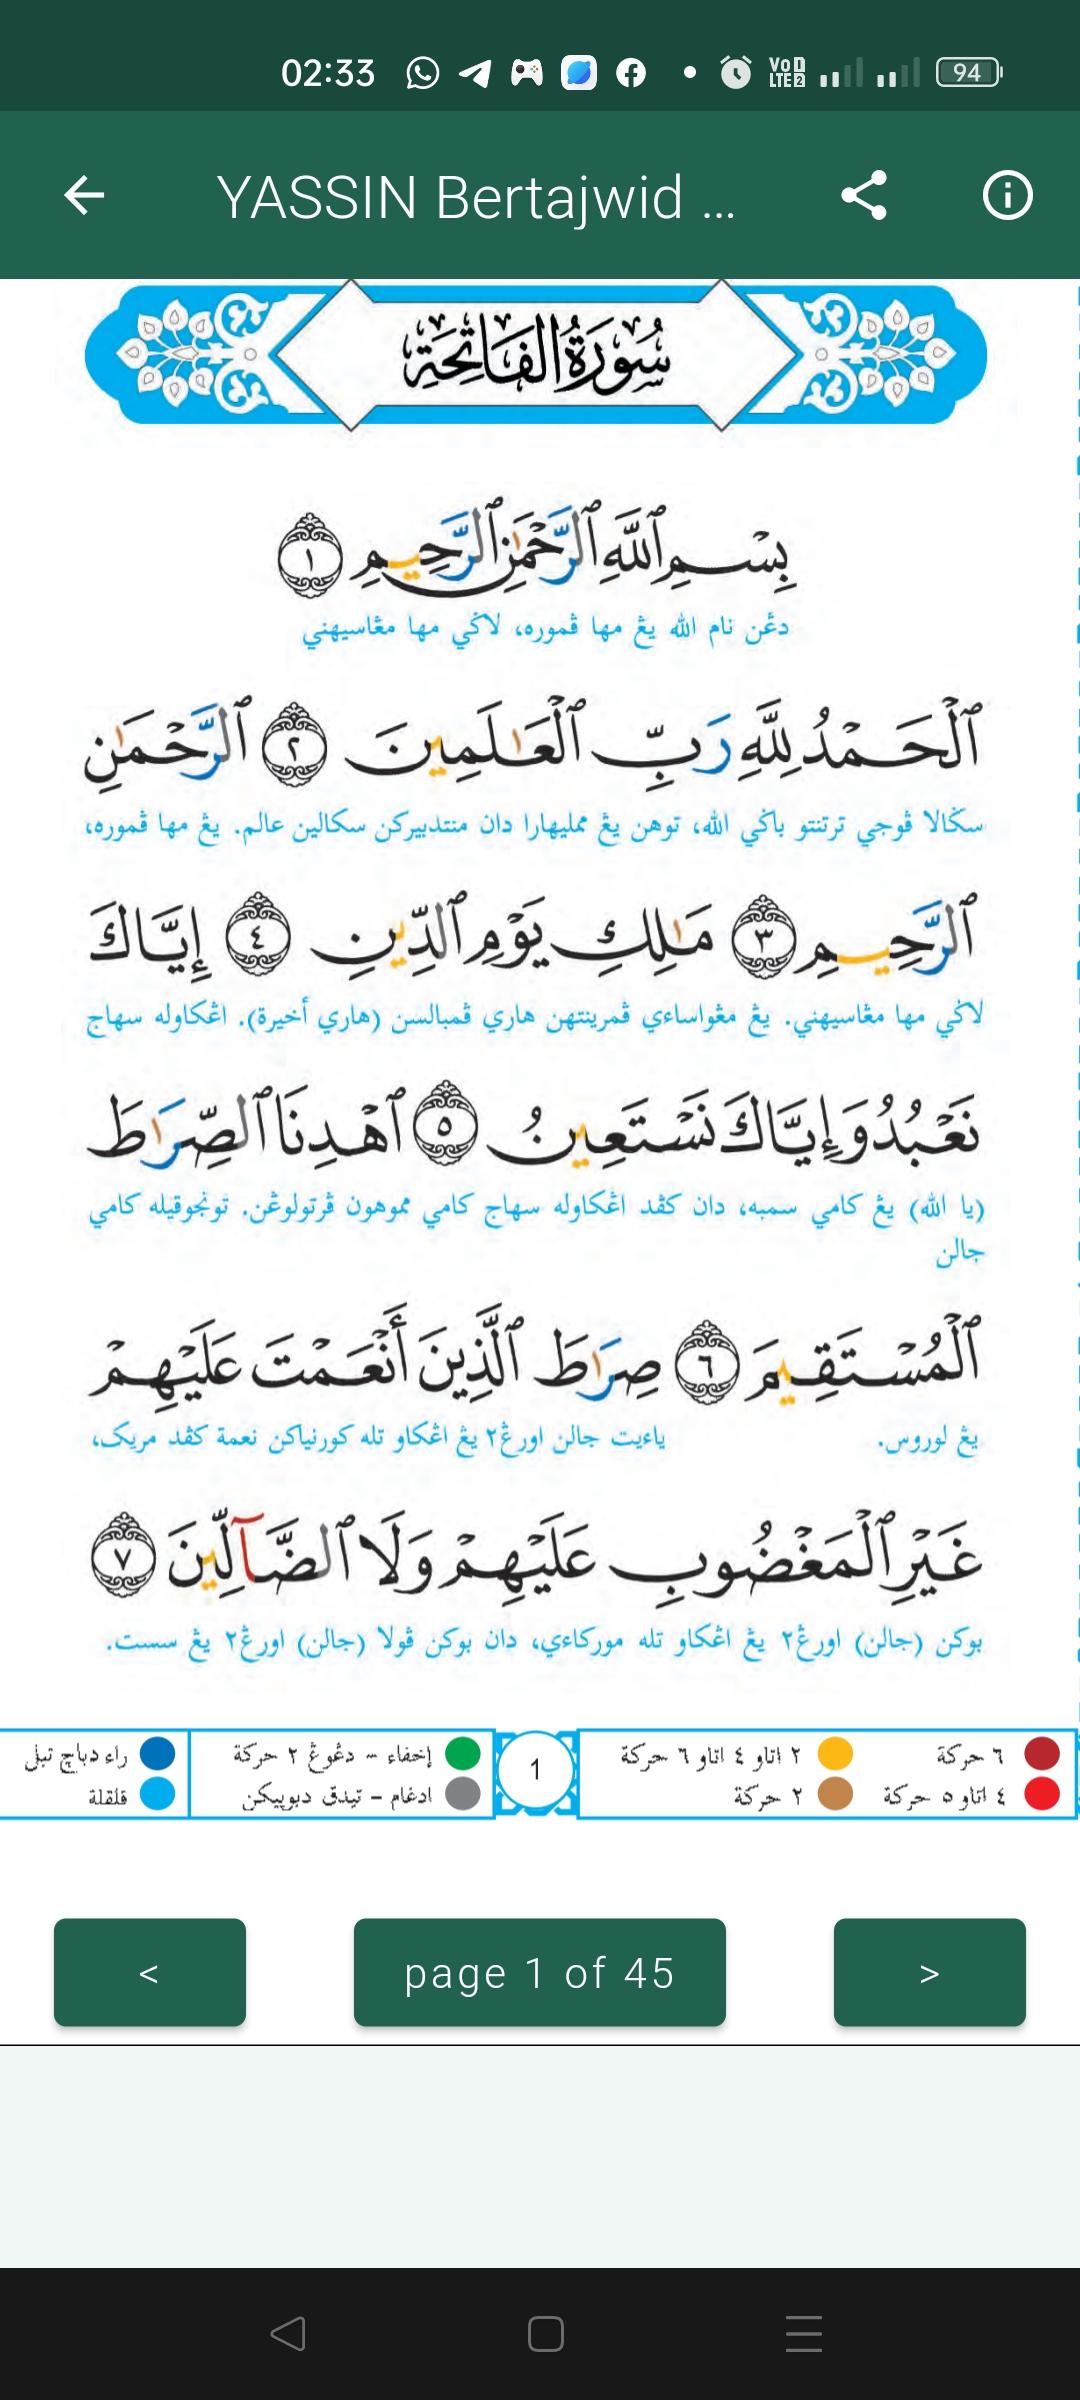 02:33
VoD LTE2
94
YASSIN Bertajwid ...
سُورَةُ الْفَاتِحَةِ
بِسْمِ ٱللَّهِ ٱلرَّحْمَٰنِ ٱلرَّحِيمِ ١
دڠن نام الله يڠ مها ڤموره، لاݢي مها مڠاسيهني
ٱلْحَمْدُ لِلَّهِ رَبِّ ٱلْعَٰلَمِينَ ٢ ٱلرَّحْمَٰنِ
سݢالا ڤوجي ترتنتو باݢي الله، توهن يڠ ممليهارا دان منتدبيركن سكالين عالم. يڠ مها ڤموره،
ٱلرَّحِيمِ ٣ مَٰلِكِ يَوْمِ ٱلدِّينِ ٤ إِيَّاكَ
لاݢي مها مڠاسيهني. يڠ مڠواساءي ڤمرينتهن هاري ڤمبالسن (هاري أخيرة). اڠكاوله سهاج
نَعْبُدُ وَإِيَّاكَ نَسْتَعِينُ ٥ ٱهْدِنَا ٱلصِّرَٰطَ
(يا الله) يڠ كامي سمبه، دان كڤد اڠكاوله سهاج كامي مموهون ڤرتولوڠن. تونجوقيله كامي
جالن
ٱلْمُسْتَقِيمَ ٦ صِرَٰطَ ٱلَّذِينَ أَنْعَمْتَ عَلَيْهِمْ
يڠ لوروس. ياءيت جالن اورڠ٢ يڠ اڠكاو تله كورنياكن نعمة كڤد مريک،
غَيْرِ ٱلْمَغْضُوبِ عَلَيْهِمْ وَلَا ٱلضَّآلِّينَ ٧
بوكن (جالن) اورڠ٢ يڠ اڠكاو تله موركاءي، دان بوكن ڤولا (جالن) اورڠ٢ يڠ سست.
٦ حركة
٢ اتاو ٤ اتاو ٦ حركة
1
إخفاء – دڠوڠ ٢ حركة
راء دباچ تبل
٤ اتاو ٥ حركة
٢ حركة
ادغام – تيدق دبوڽيكن
قلقلة
<
page 1 of 45
>